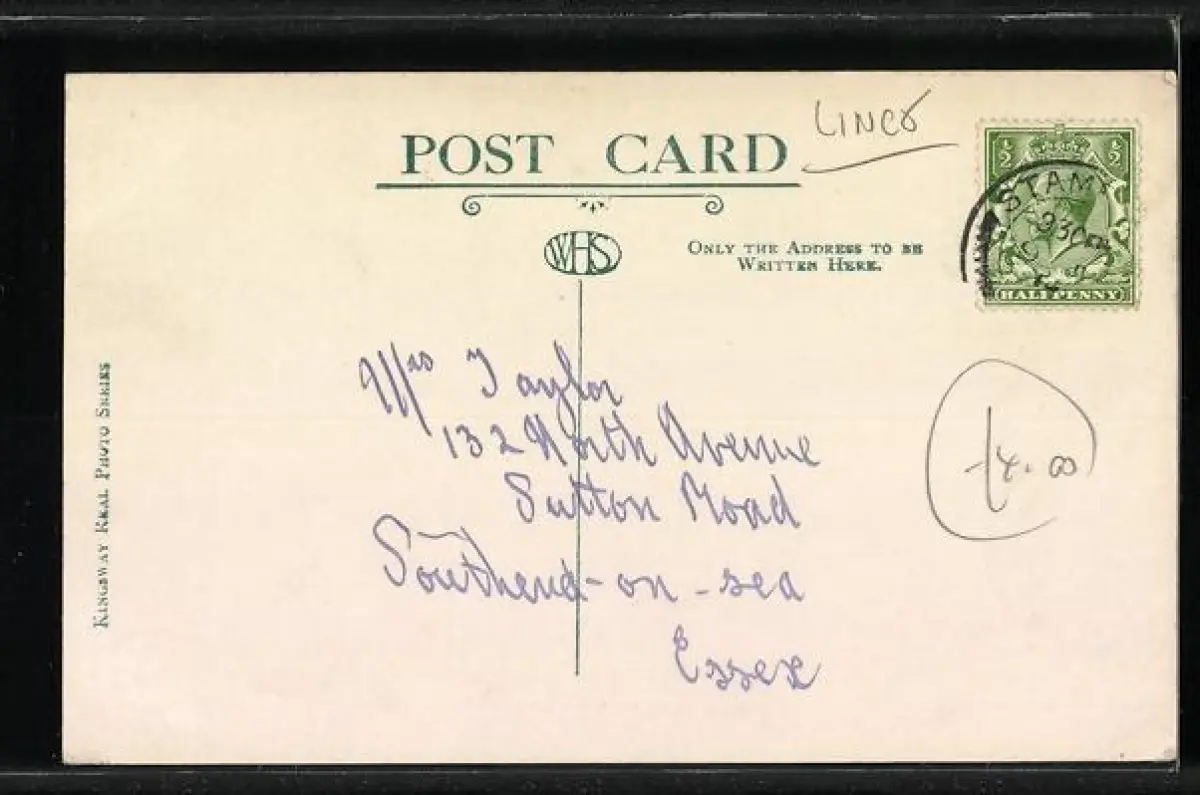 LINCS
POST CARD
WHS
ONLY THE ADDRESS TO BE
WRITTEN HERE.
½ ½
STAM
HALFPENNY
Mrs Taylor
132 North Avenue
Sutton Road
Southend-on-sea
Essex
4.00
KINGSWAY REAL PHOTO SERIES